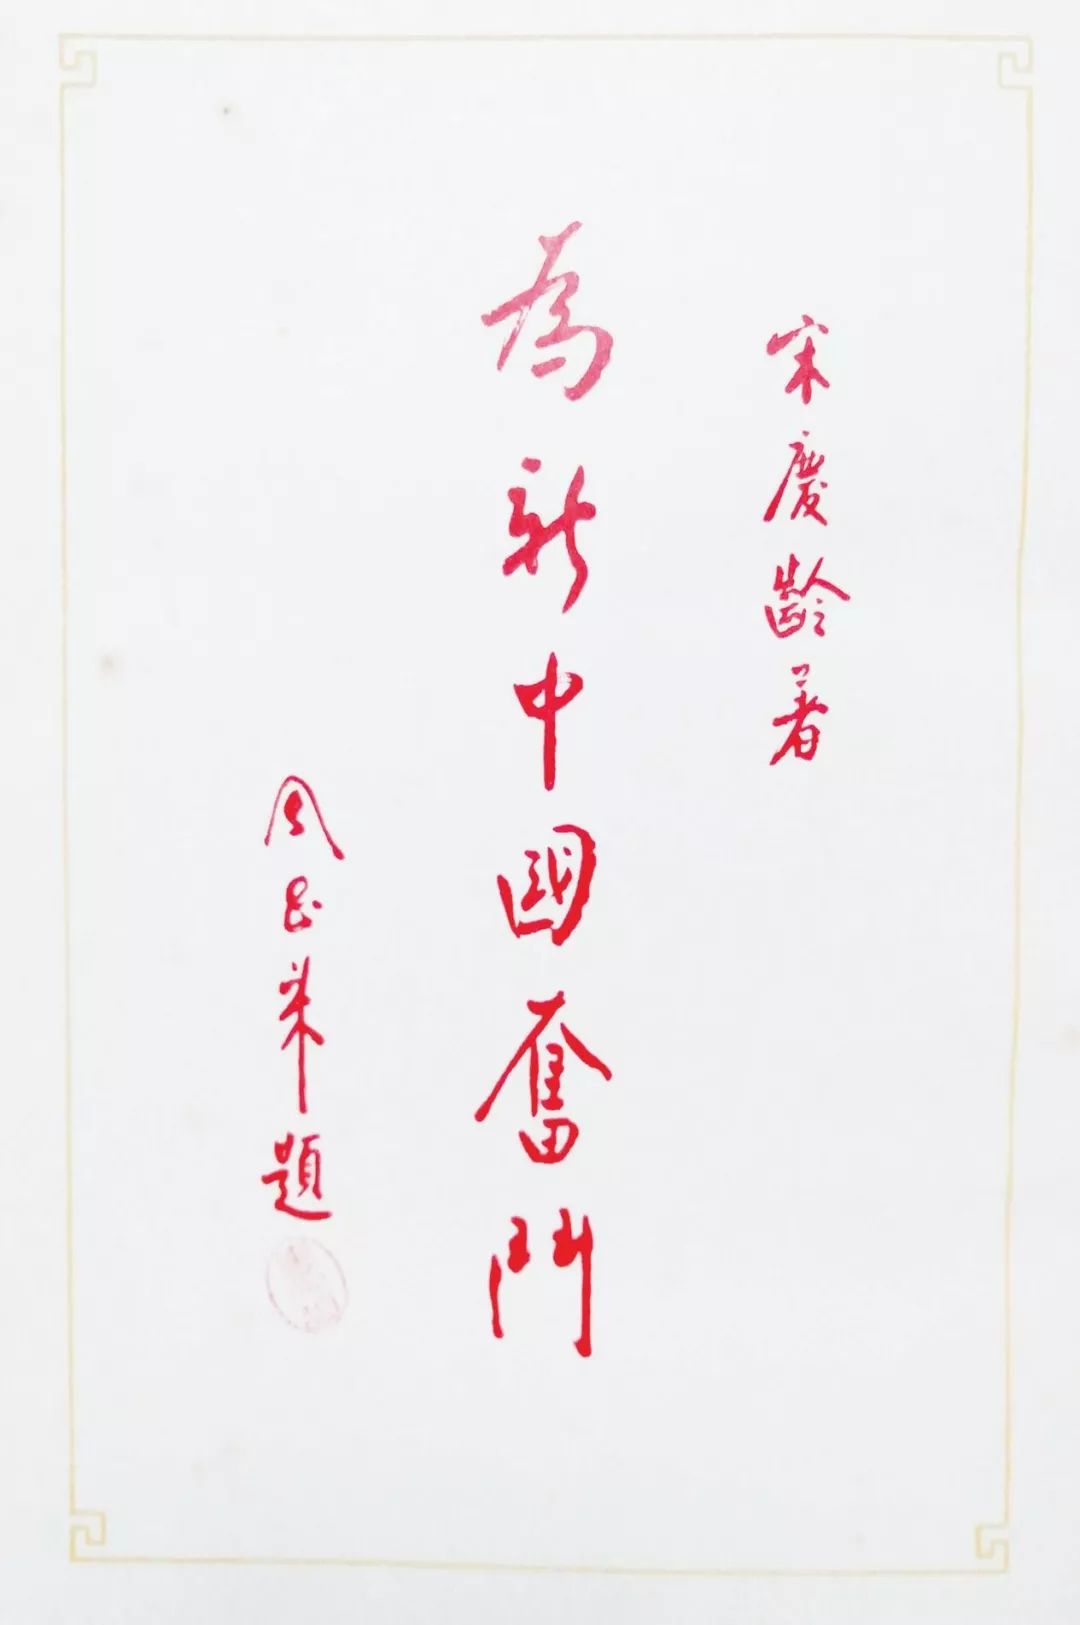 宋慶齡著
為新中國奮鬥
周恩來題